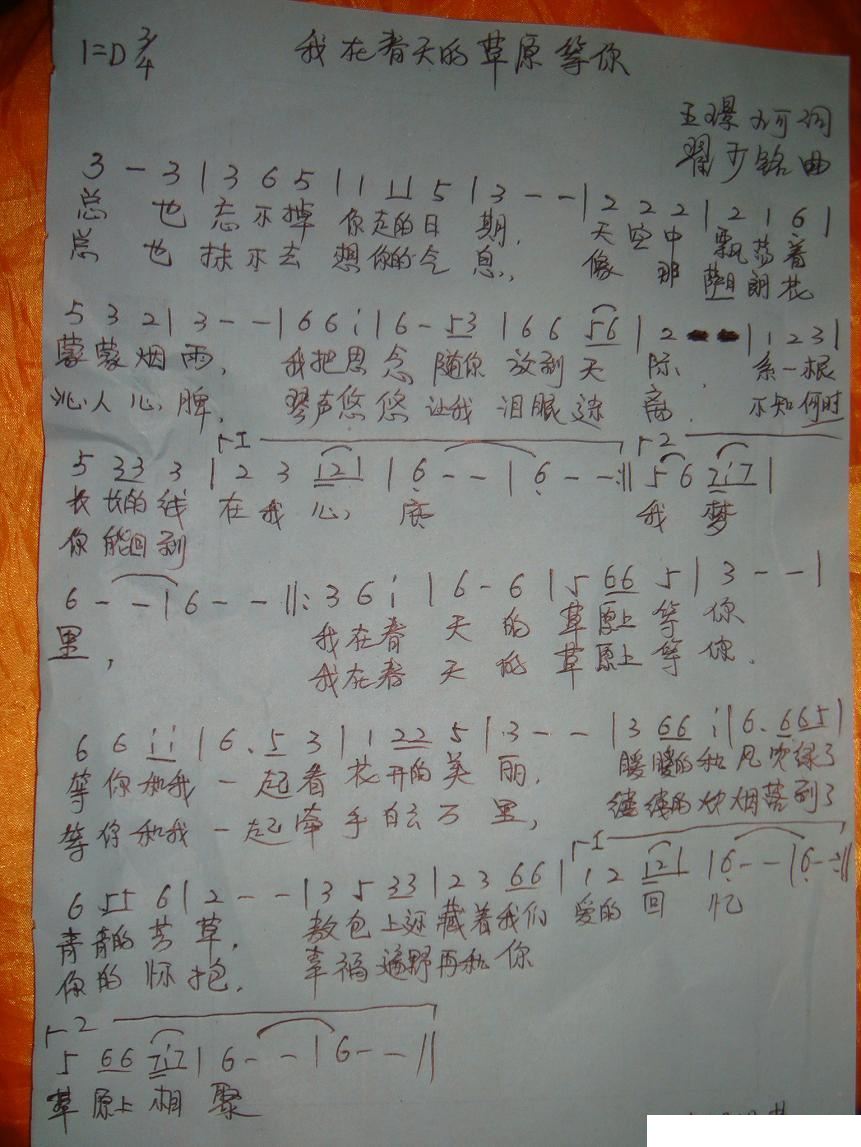 1=D 3/4 我在春天的草原等你
王璟珂词
翟少铭曲
3 - 3 | 3 6 5 | 1 11 5 | 3 - - | 2 2 2 | 2 1 6 |
总 也 忘不掉 你走的日 期, 天空中 飘荡着
总 也 抹不去 想你的气 息, 像 那 萨日朗花
5 3 2 | 3 - - | 6 6 i | 6 - 53 | 6 6 56 | 2 | 1 2 3 |
蒙蒙烟雨, 我把思念 随你 放到天 际, 系一根
沁人心脾, 琴声悠悠 让我 泪眼迷离. 不知何时
5 33 3 | 2 3 121 | 6 - - | 6 - - :|| 5 6 7i7 |
长长的线 在我 心 底 我 梦
你能回到
6 - - | 6 - - ||: 3 6 i | 6 - 6 | 5 66 5 | 3 - - |
里, 我在春 天 的 草原上 等 你
我在春 天 的 草原上 等 你.
6 6 ii | 6. 5 3 | 1 22 5 | 3 - - | 3 66 i | 6. 665 |
等你和我 一起看 花开的美 丽, 暖暖的和风吹绿了
等你和我 一起牵 手白云万 里, 缕缕的炊烟落到了
6 55 6 | 2 - - | 3 5 33 | 2 3 66 | 1 2 121 | 6 - - | 6 - - :||
青青的芳草, 敖包上还藏着我们 爱的 回 忆
你的怀抱, 幸福遍野再和你
5 66 7i7 | 6 - - | 6 - - ||
草原上 相 聚